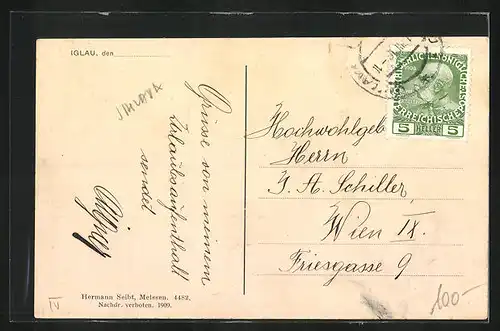 IGLAU, den
JIHLAVA
Grüsse von meinem
Urlaubsaufenthalt
sendet
Hochwohlgeb
Herrn
J. A. Schiller,
Wien IX.
Friesgasse 9
5 HELLER 5
Hermann Seibt, Meissen. 4482.
Nachdr. verboten. 1909.
IV
100-